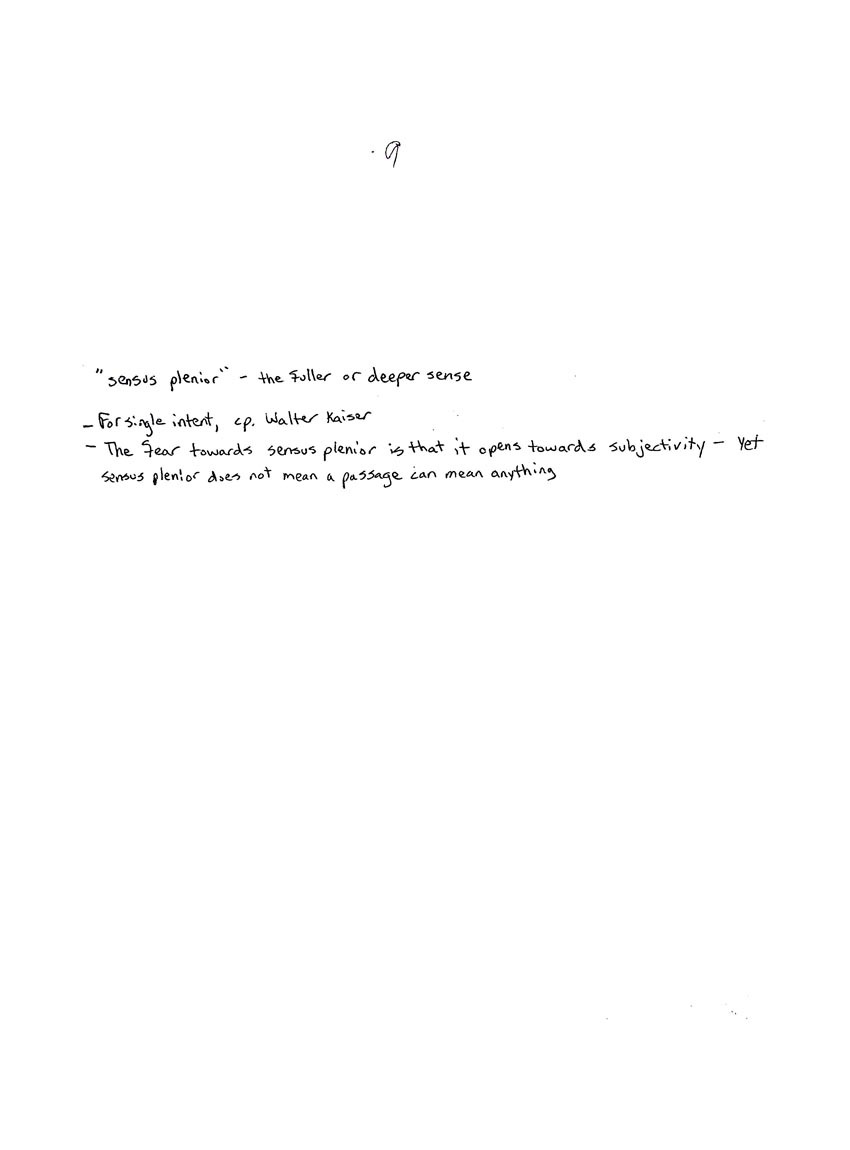 9
"sensus plenior" - the fuller or deeper sense
- For single intent, cp. Walter Kaiser
- The fear towards sensus plenior is that it opens towards subjectivity - Yet
sensus plenior does not mean a passage can mean anything